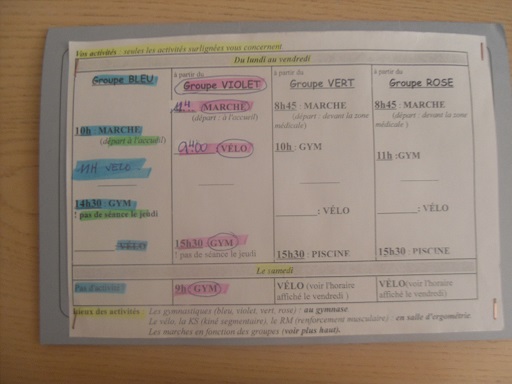 Vos activités : seules les activités surlignées vous concernent.
Du lundi au vendredi
Groupe BLEU
10h : MARCHE
(départ à l'accueil)
11H VELO
14h30 : GYM
! pas de séance le jeudi
VÉLO
à partir du
Groupe VIOLET
MARCHE
(départ : à l'accueil)
VÉLO
15h30 : GYM
! pas de séance le jeudi
à partir du
Groupe VERT
8h45 : MARCHE
(départ : devant la zone
médicale)
10h : GYM
: VÉLO
15h30 : PISCINE
à partir du
Groupe ROSE
8h45 : MARCHE
(départ : devant la zone
médicale )
11h :GYM
: VÉLO
15h30 : PISCINE
Le samedi
Pas d'activité
9h : GYM
VÉLO (voir l'horaire
affiché le vendredi )
VÉLO(voir l'horaire
affiché le vendredi)
Lieux des activités : Les gymnastiques (bleu, violet, vert, rose) : au gymnase.
Le vélo, la KS (kiné segmentaire), le RM (renforcement musculaire) : en salle d'ergométrie.
Les marches en fonction des groupes (voir plus haut).